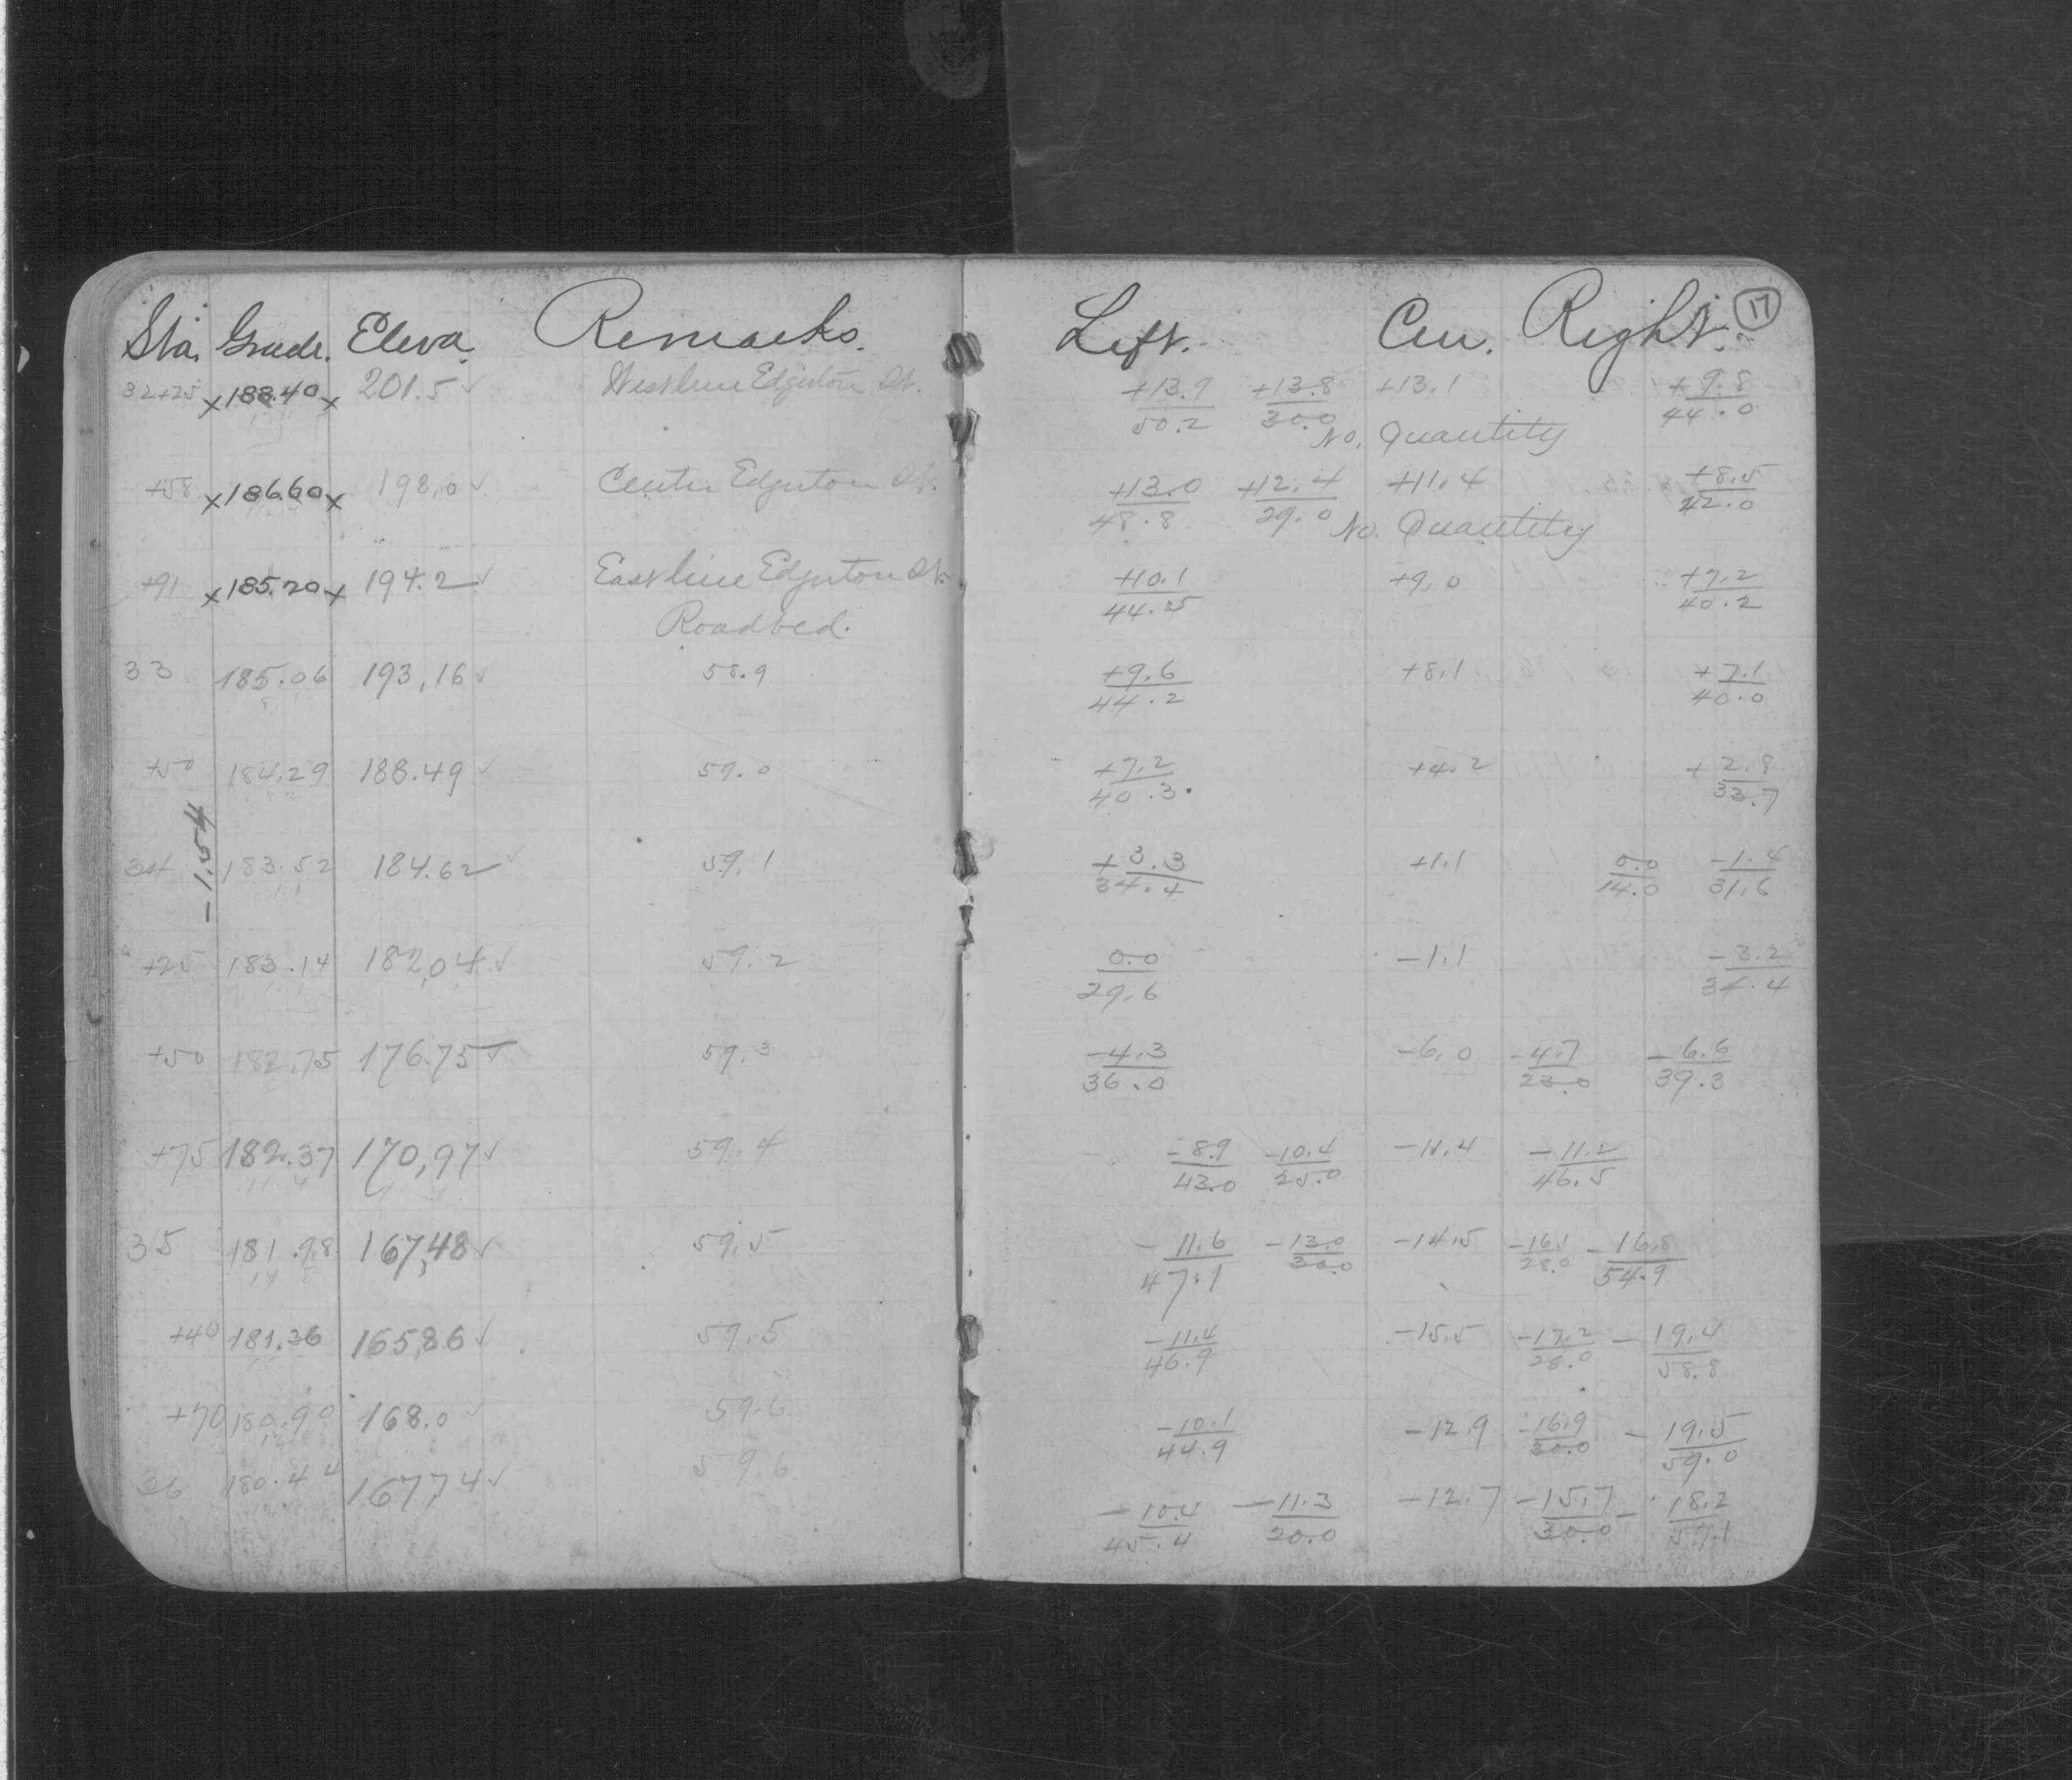 Sta. Grade. Eleva. Remarks. Left. Cen. Right. 17
32+25 x188.40x 201.5✓ West line Edgerton St. +13.9/50.2 +13.8/30.0 +13.1 +9.8/44.0
No. Quantity
+58 x186.60x 198.0✓ Center Edgerton St. +13.0/48.8 +12.4/29.0 +11.4 +8.5/42.0
No. Quantity
+91 x185.20x 194.2✓ East line Edgerton St. +10.1/44.5 +9.0 +7.2/40.2
Roadbed.
33 185.06 193.16✓ 58.9 +9.6/44.2 +8.1 +7.1/40.0
+50 184.29 188.49✓ 59.0 +7.2/40.3 +4.2 +2.8/33.7
-1.54
34 183.52 184.62✓ 59.1 +3.3/34.4 +1.1 0.0/14.0 -1.4/31.6
+25 183.14 182.04✓ 59.2 0.0/29.6 -1.1 -3.2/34.4
+50 182.75 176.75✓ 59.3 -4.3/36.0 -6.0 -4.7/23.0 -6.6/39.3
+75 182.37 170.97✓ 59.4 -8.9/43.0 -10.4/25.0 -11.4 -11.2/46.5
35 181.98 167.48✓ 59.5 -11.6/47.1 -13.0/30.0 -14.5 -16.1/28.0 -16.8/54.9
+40 181.36 165.86✓ 59.5 -11.4/46.9 -15.5 -17.2/28.0 -19.4/58.8
+70 180.90 168.0✓ 59.6 -10.1/44.9 -12.9 -16.9/30.0 -19.5/59.0
36 180.44 167.74✓ 59.6 -10.4/45.4 -11.3/20.0 -12.7 -15.7/30.0 -18.2/57.1